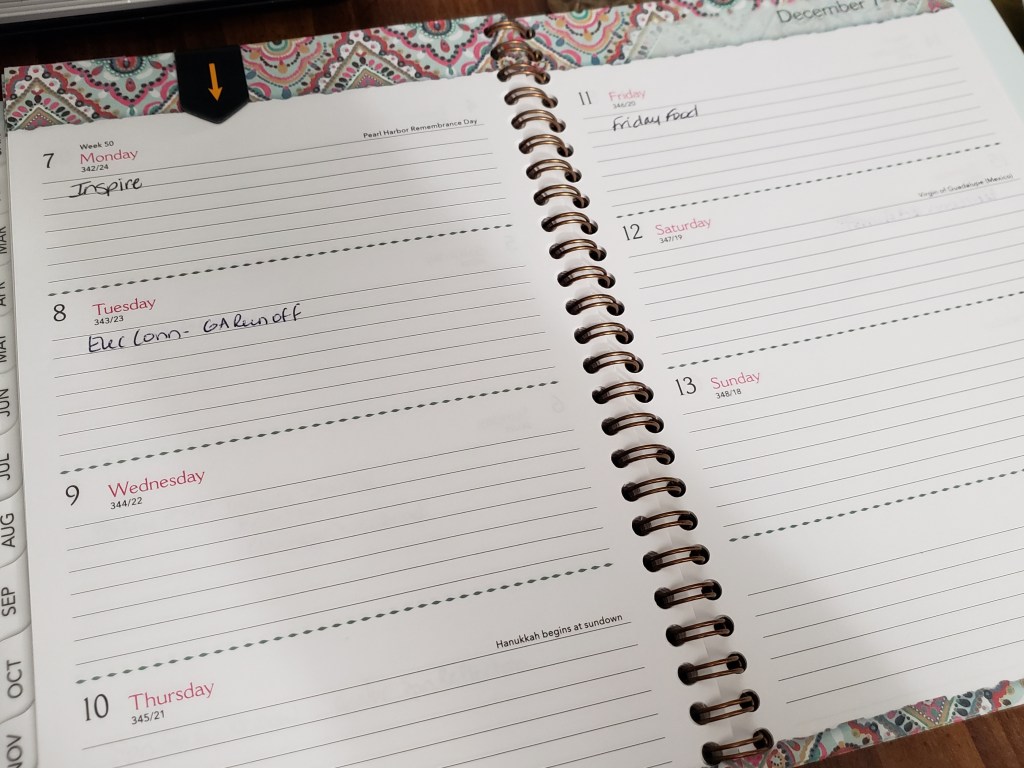 December
Week 50
Pearl Harbor Remembrance Day
7 Monday
342/24
Inspire
8 Tuesday
343/23
Elec Conn - GA Runoff
9 Wednesday
344/22
Hanukkah begins at sundown
10 Thursday
345/21
11 Friday
346/20
Friday Food
Virgin of Guadalupe (Mexico)
12 Saturday
347/19
13 Sunday
348/18
MAR
APR
MAY
JUN
JUL
AUG
SEP
OCT
NOV